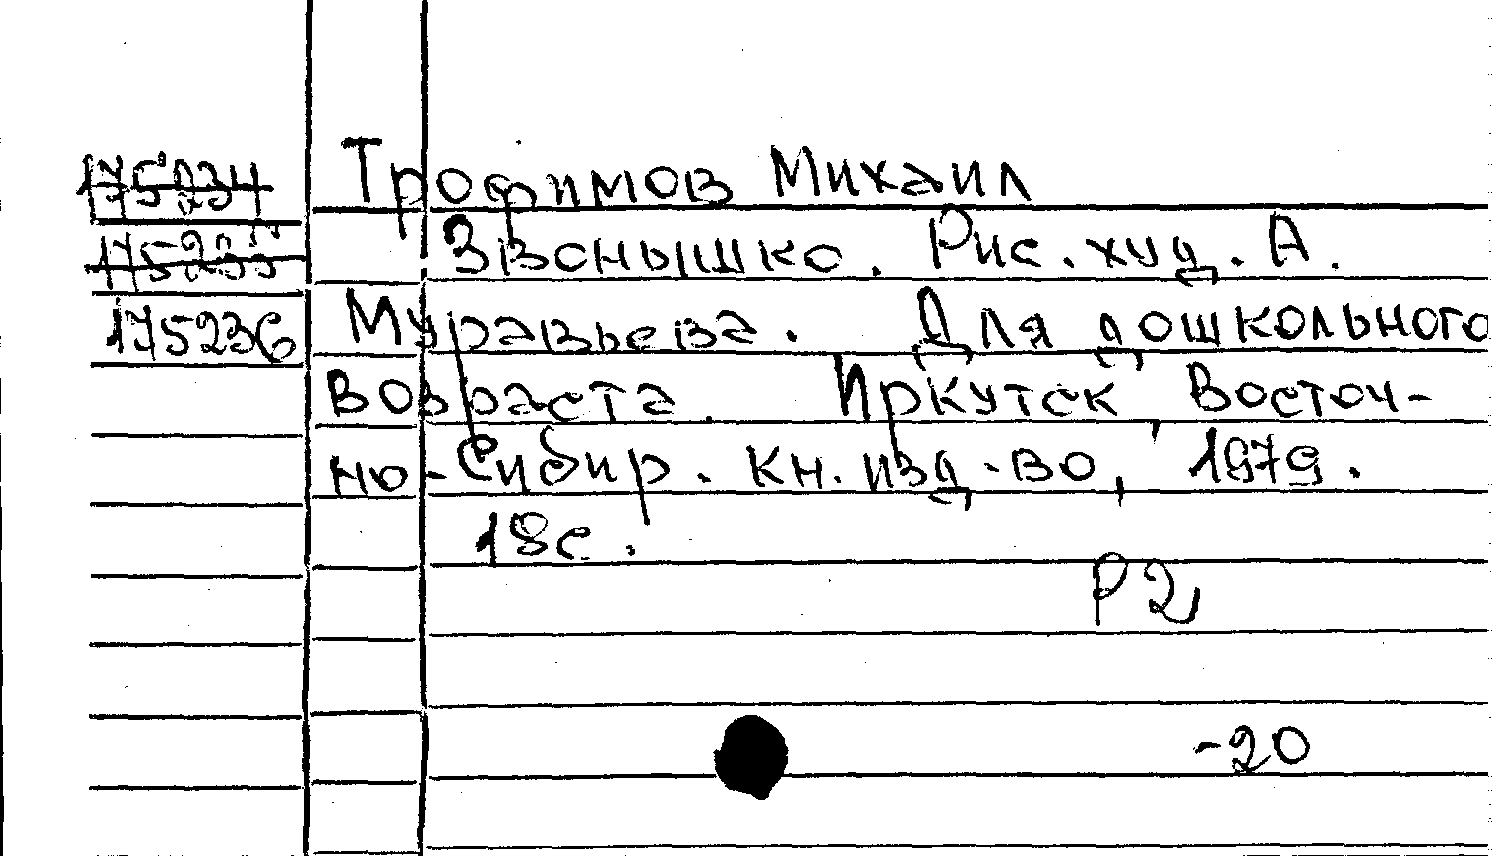 175234 Трофимов Михаил
175235 Звонышко. Рис. худ. А.
175236 Муравьева. Для дошкольного
возраста. Иркутск, Восточ-
но-Сибир. кн. изд-во, 1979.
18с.
Р2
-20